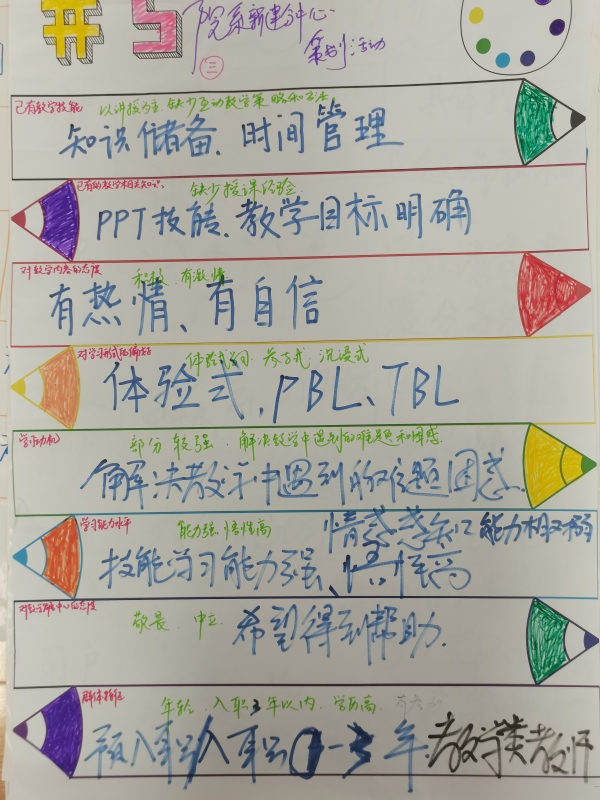 #5 院系新建中心
策划活动
三
已有教学技能 以讲授为主 缺少互动教学策略和方法
知识储备、时间管理
已有的教学相关知识 缺少授课经验
PPT技能、教学目标明确
对教学内容的态度 积极、有激情
有热情、有自信
对学习形式的偏好 体验式 参与式 沉浸式
体验式、PBL、TBL
学习动机 部分较强、解决教学中遇到的难题和困惑
解决教学中遇到的问题困惑
学习能力水平 能力强 悟性高 情感感知能力相对弱
技能学习能力强、悟性高
敬畏、中立 希望得到帮助
群体特征 年轻、入职3年以内、学历高
预入职/入职 1-3 年 教学类教师